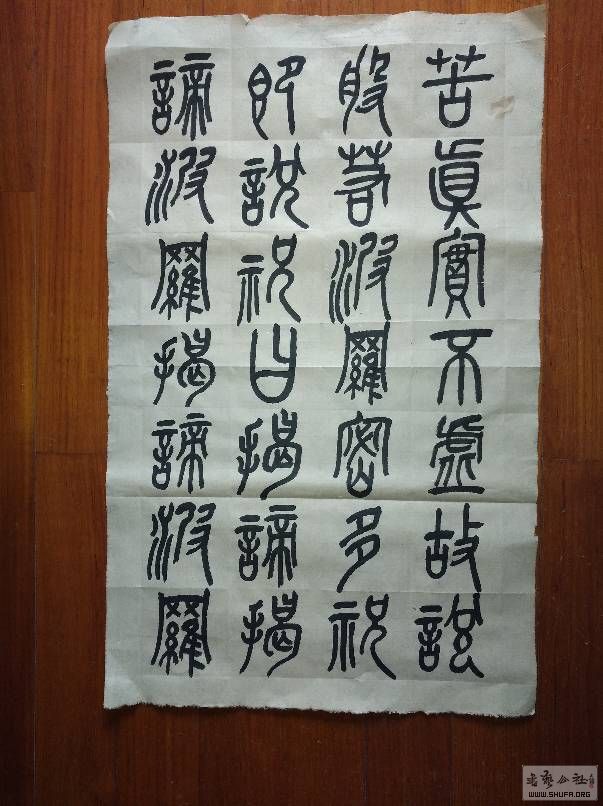 苦真實不虛故說
般若波羅密多祝
即說祝曰揭諦揭
諦波羅揭諦波羅
书艺公社
WWW.SHUFA.ORG